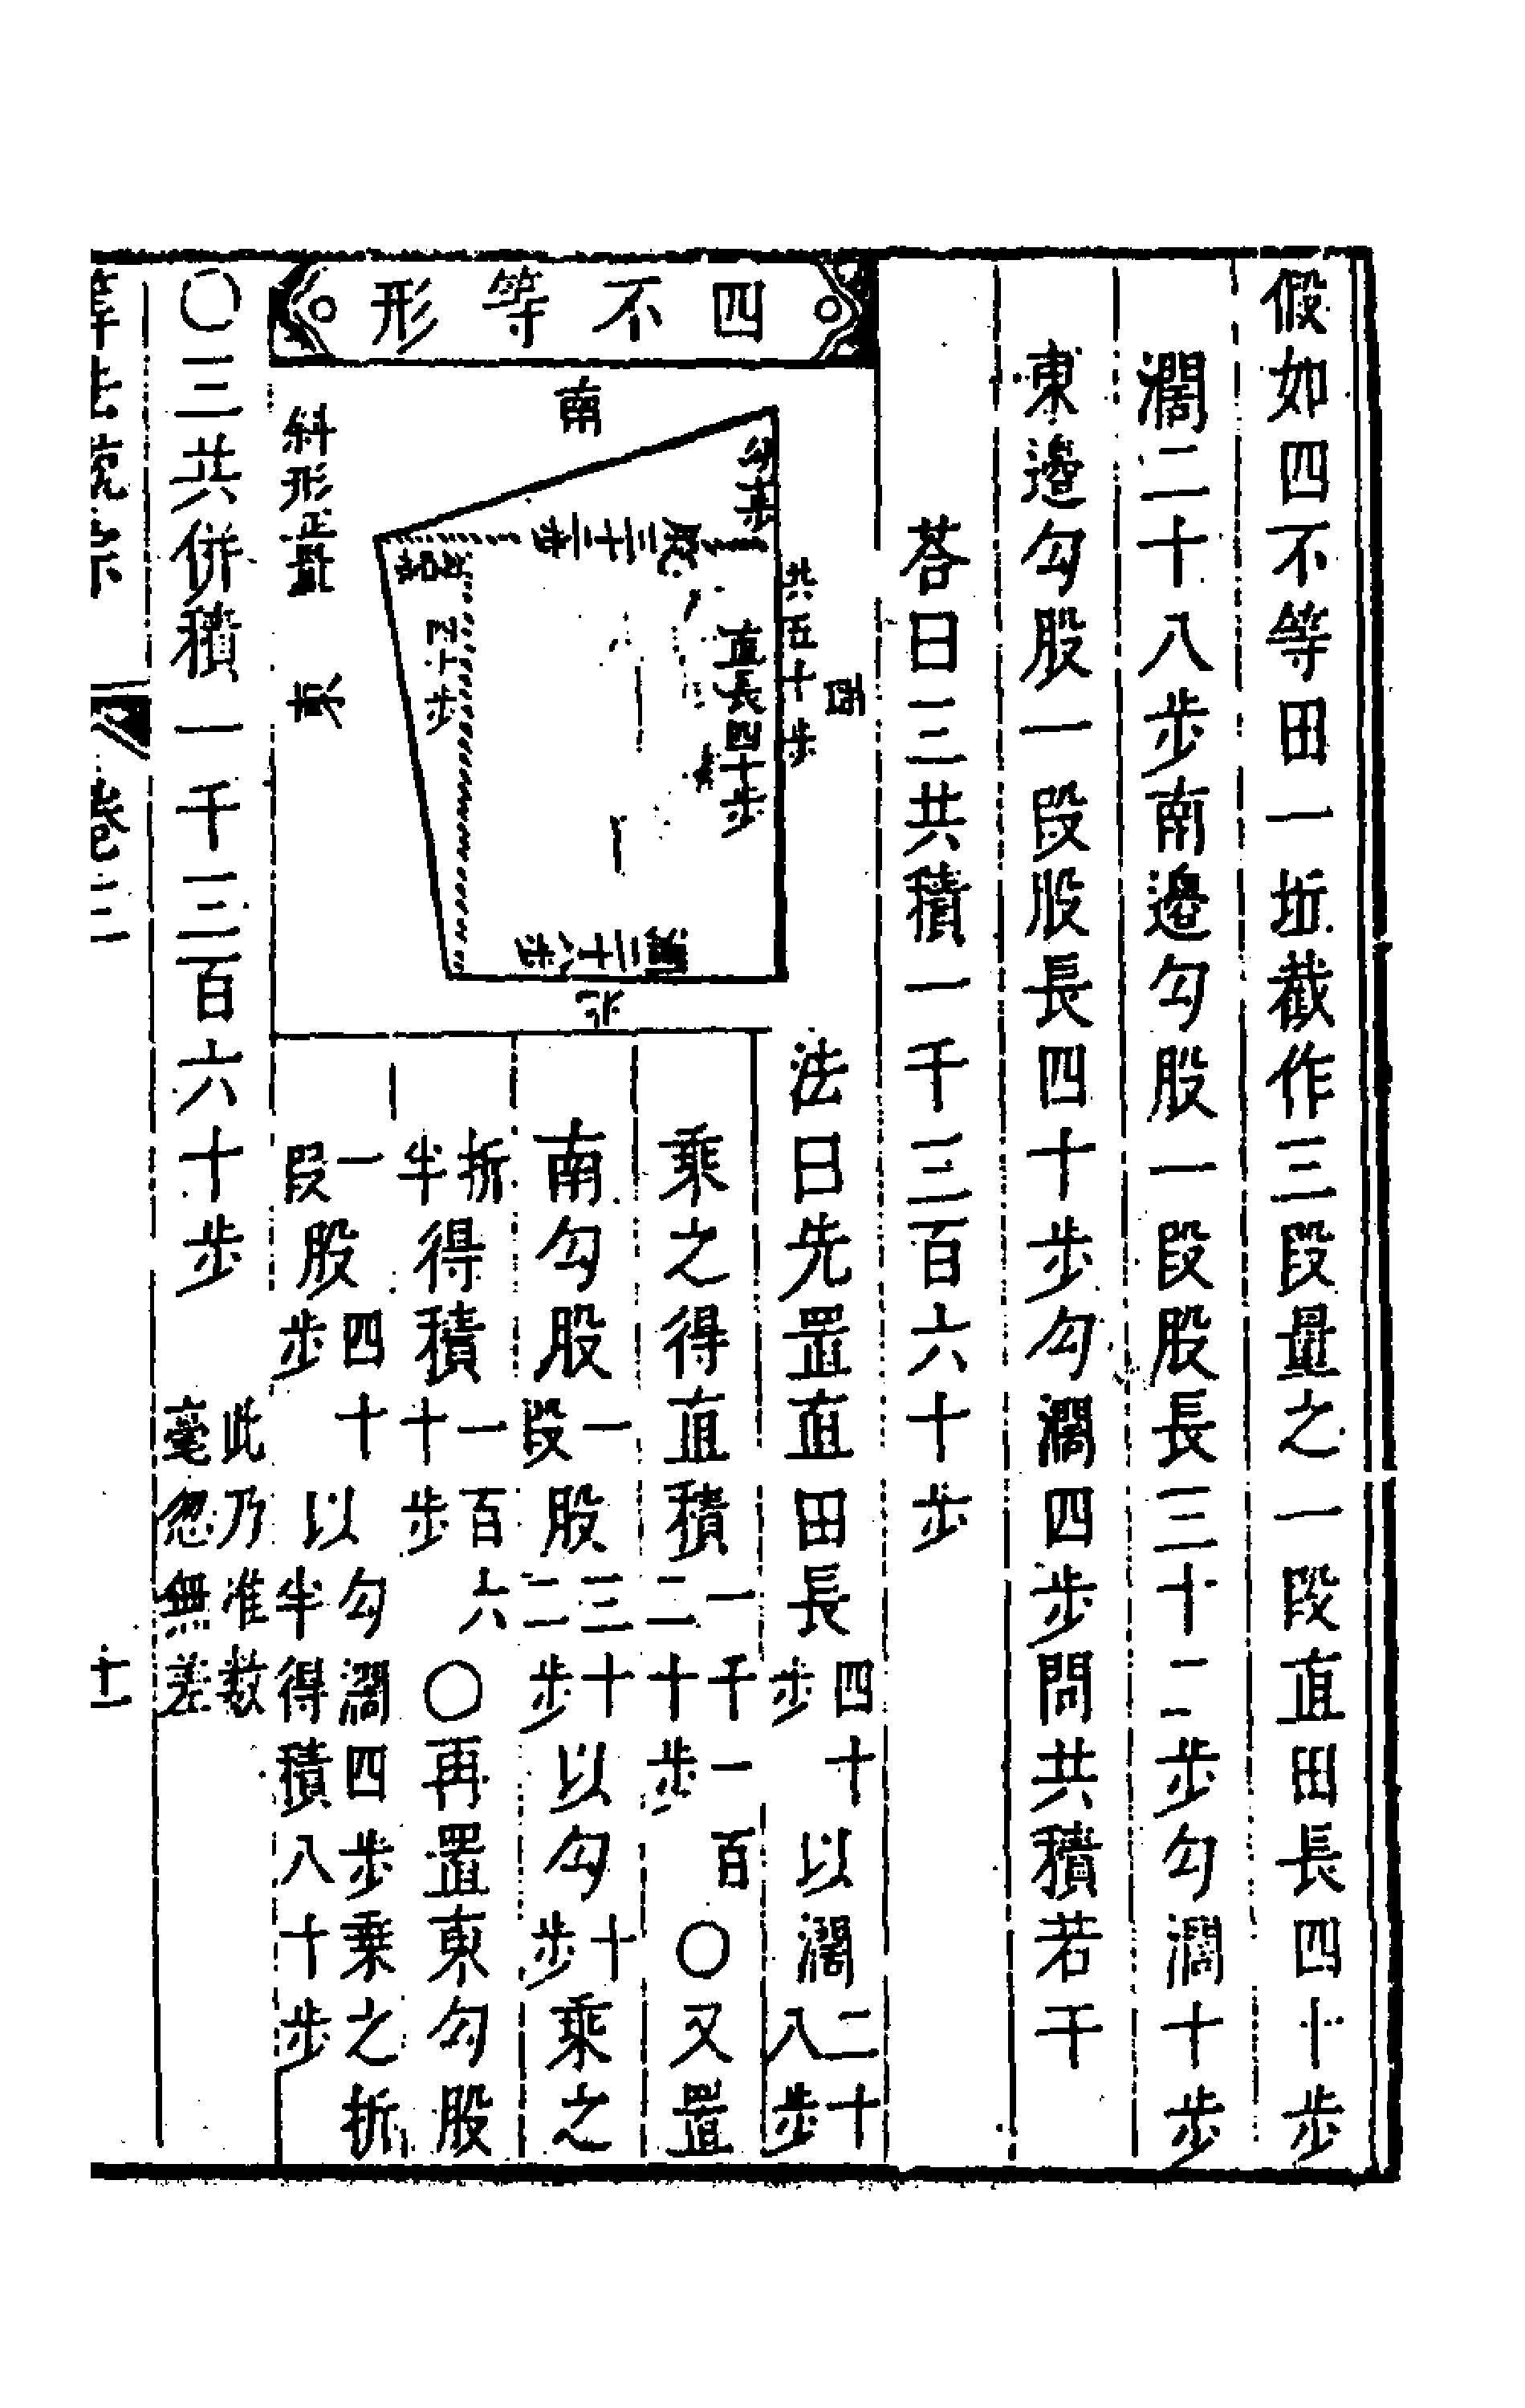 假如四不等田一坵截作三段量之一段直田長四十步
濶二十八步南邉勾股一段股長三十二步勾濶十步
東邉勾股一段股長四十步勾濶四步問共積若干
荅曰三共積一千三百六十步
四不等形
南
勾十步
股三十二步
共五十步
西
直長四十步
四十步
濶二十八步
北
斜形正量
東
法曰先置直田長四十步以濶二十八步
乘之得直積一千一百二十步〇又置
南勾股一段股三十二步以勾十步乘之
折半得積一百六十步〇再置東勾股
一段股四十步以勾濶四步乘之折半得積八十步
〇三共併積一千三百六十步此乃准数毫忽無差
算法統宗 卷三 十一